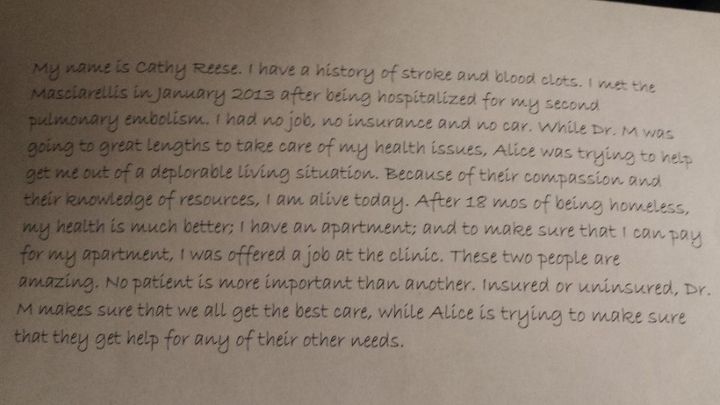 My name is Cathy Reese. I have a history of stroke and blood clots. I met the
Masciarellis in January 2013 after being hospitalized for my second
pulmonary embolism. I had no job, no insurance and no car. While Dr. M was
going to great lengths to take care of my health issues, Alice was trying to help
get me out of a deplorable living situation. Because of their compassion and
their knowledge of resources, I am alive today. After 18 mos of being homeless,
my health is much better; I have an apartment; and to make sure that I can pay
for my apartment, I was offered a job at the clinic. These two people are
amazing. No patient is more important than another. Insured or uninsured, Dr.
M makes sure that we all get the best care, while Alice is trying to make sure
that they get help for any of their other needs.